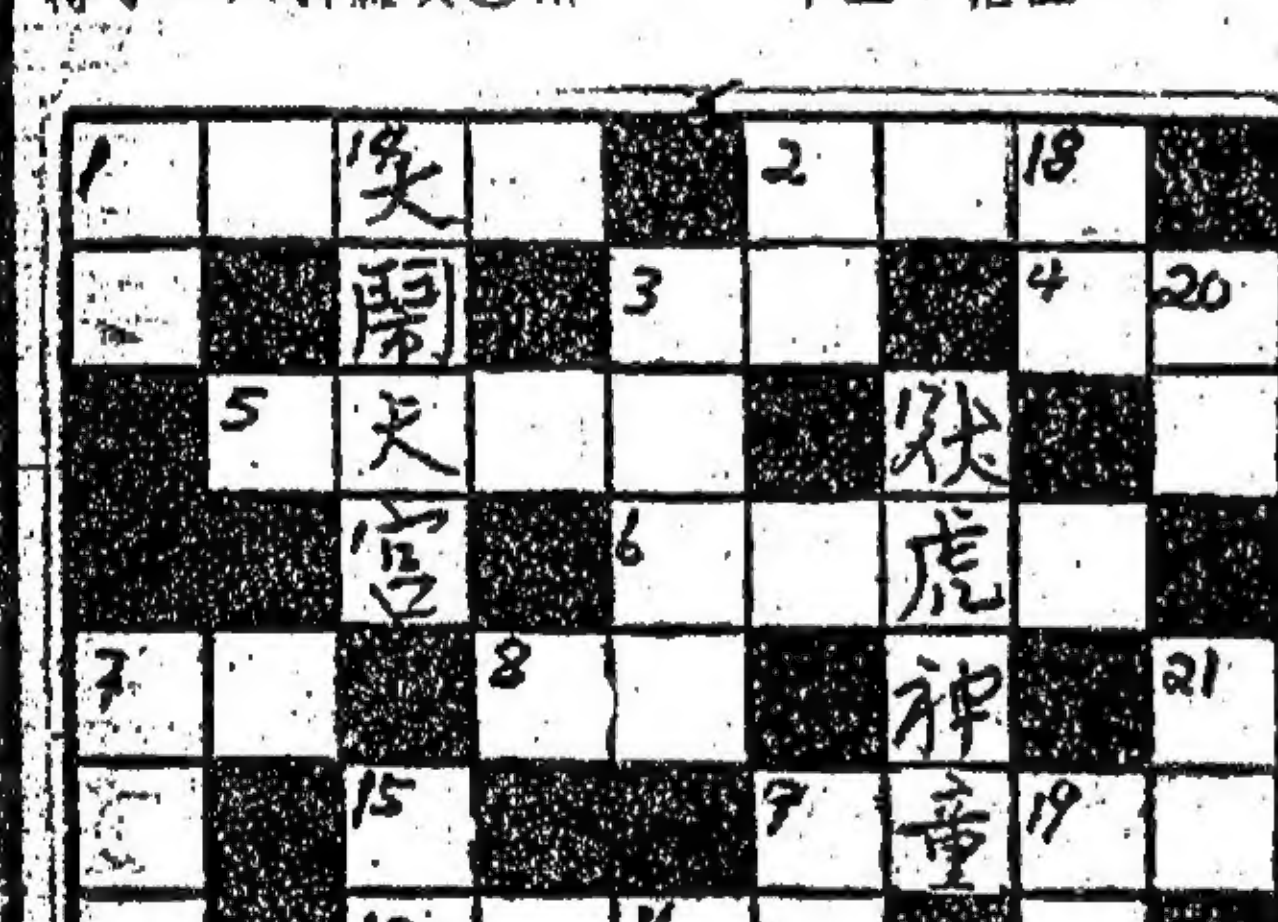 1 14 大 2 18
鬧 3 4 20
5 天 17 伏
宮 6 虎
7 8 神 21
15 9 童 19